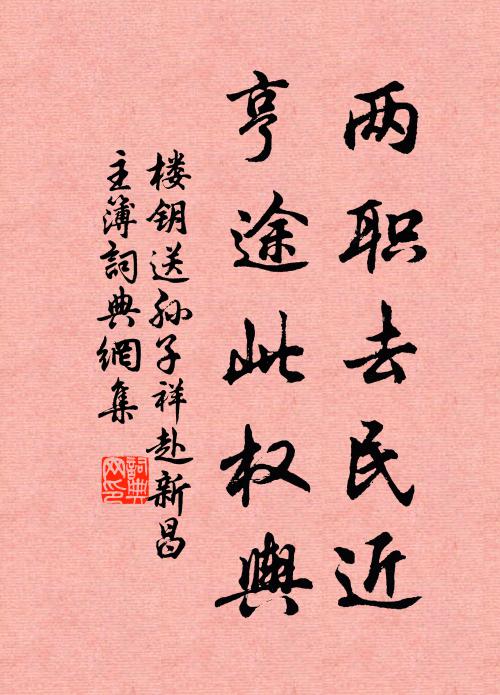 两职去民近
亨途此权舆
楼钥送孙子祥赴新昌
主簿詞典網集
詞典网印